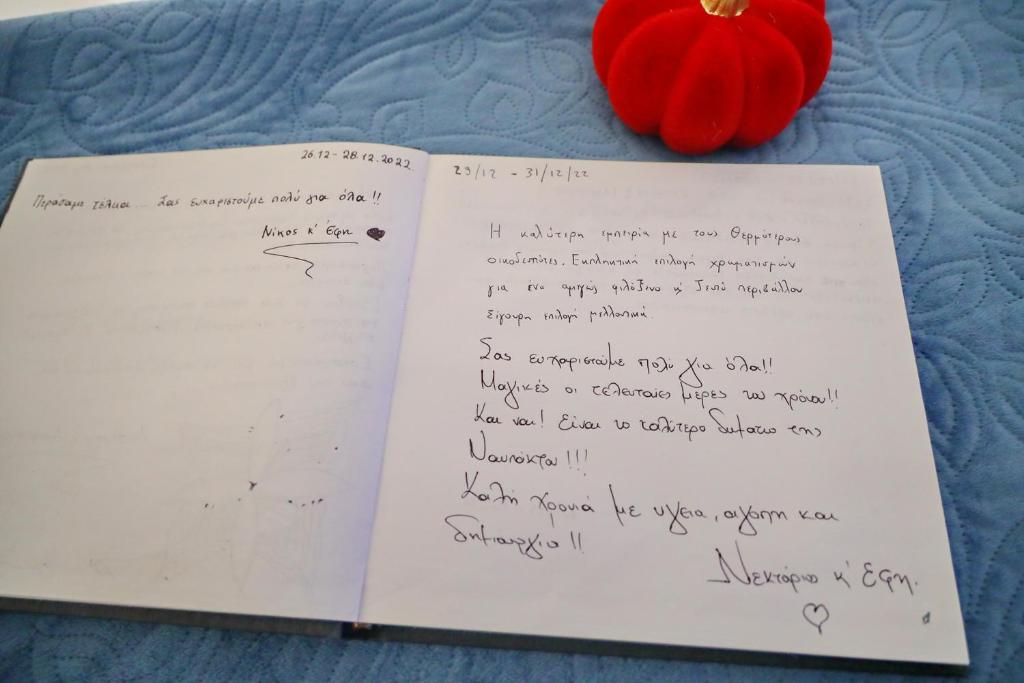 26.12 - 28.12.2022.
Περάσαμε τέλεια... Σας ευχαριστούμε πολύ για όλα!!
Νίκος κ' Έφη
29/12 - 31/12/22
Η καλύτερη εμπειρία με τους θερμότερους
οικοδεσπότες. Εκπληκτική επιλογή χρωματισμών
για ένα αμιγώς φιλόξενο κ' ζεστό περιβάλλον
Σίγουρη επιλογή μελλοντικά.
Σας ευχαριστούμε πολύ για όλα!!
Μαγικές οι τελευταίες μέρες του χρόνου!!
Και ναι! Είναι το καλύτερο δωμάτιο της
Ναυπάκτου!!!
Καλή χρονιά με υγεία, αγάπη και
δημιουργία!!
Νεκτάριος κ' Έφη.